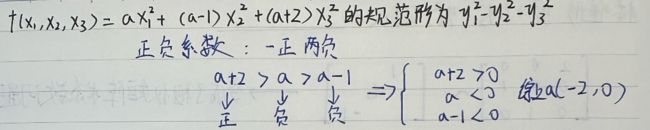 f(x₁,x₂,x₃)= ax₁²+(a-1)x₂²+(a+2)x₃²的规范形为 y₁²-y₂²-y₃²
正负系数：一正两负
a+2 > a > a-1 ⇒ { a+2>0
↓ ↓ ↓ a<0 综上a(-2,0)
正 负 负 a-1<0